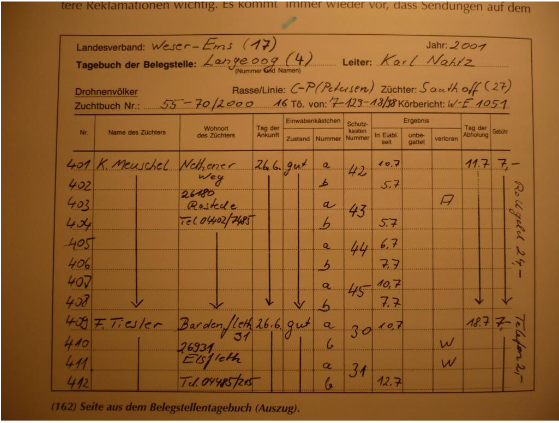 tere Reklamationen wichtig. Es kommt immer wieder vor, dass Sendungen auf dem
Landesverband: Weser-Ems (17) Jahr: 2001
Tagebuch der Belegstelle: Langeoog (4) Leiter: Karl Nahlz
(Nummer und Namen)
Drohnenvölker Rasse/Linie: C-P (Petersen) Züchter: Sandhoff (27)
Zuchtbuch Nr.: 55-70/2000 16 Tö. von: 7-123-18/98 Körbericht: W-E 1051
Nr. Name des Züchters Wohnort des Züchters Tag der Ankunft Einwabenkästchen Zustand Nummer Schutzkasten Nummer Ergebnis In Eiabl. seit unbegattet verloren Tag der Abholung Gebühr
401 K. Meuschel Nethener 26.6. gut a 42 10.7 11.7 7,-
402 Weg b 5.7
403 26180 Rastede a 43
404 Tel. 04402/7485 b 5.7
405 a 44 6.7
406 b 7.7
407 a 45 10.7
408 b 7.7
409 F. Tiesler Bardenfleth 31 26.6. gut a 30 10.7 18.7 7,-
410 26931 b W
411 Elsfleth a 31 W
412 Tel. 04485/205 b 12.7
(162) Seite aus dem Belegstellentagebuch (Auszug).